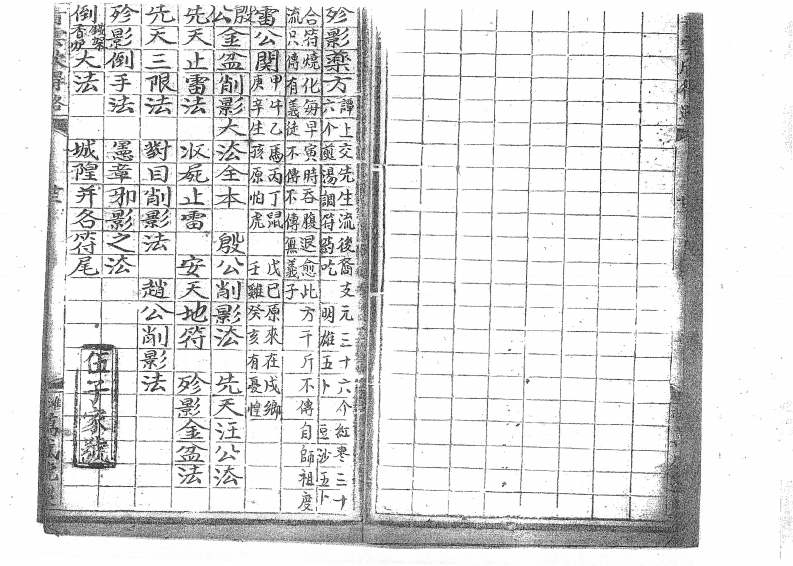 殄影藥方 譚上交先生流後裔支元三十六个紅棗三十
六个煎湯調符藥吃 明雄五卜 豆沙五卜
合符燒化每早寅時吞腹退愈此方千斤不傳自師祖度
流只傳有義徒不傳不傳無義子
雷公關 甲午乙馬丙丁鼠 戊己原來在戌鄉
庚辛生孩原怕虎 壬雞癸亥有憂惶
殷公金盆削影大法全本 殷公削影法 先天汪公法
先天止雷法 収屍止雷 安天地符 殄影金盆法
先天三限法 對日削影法 趙公削影法
殄影倒手法 憲章邪影之法
倒鐵架香炉大法 城隍并各符尾
伍子家號